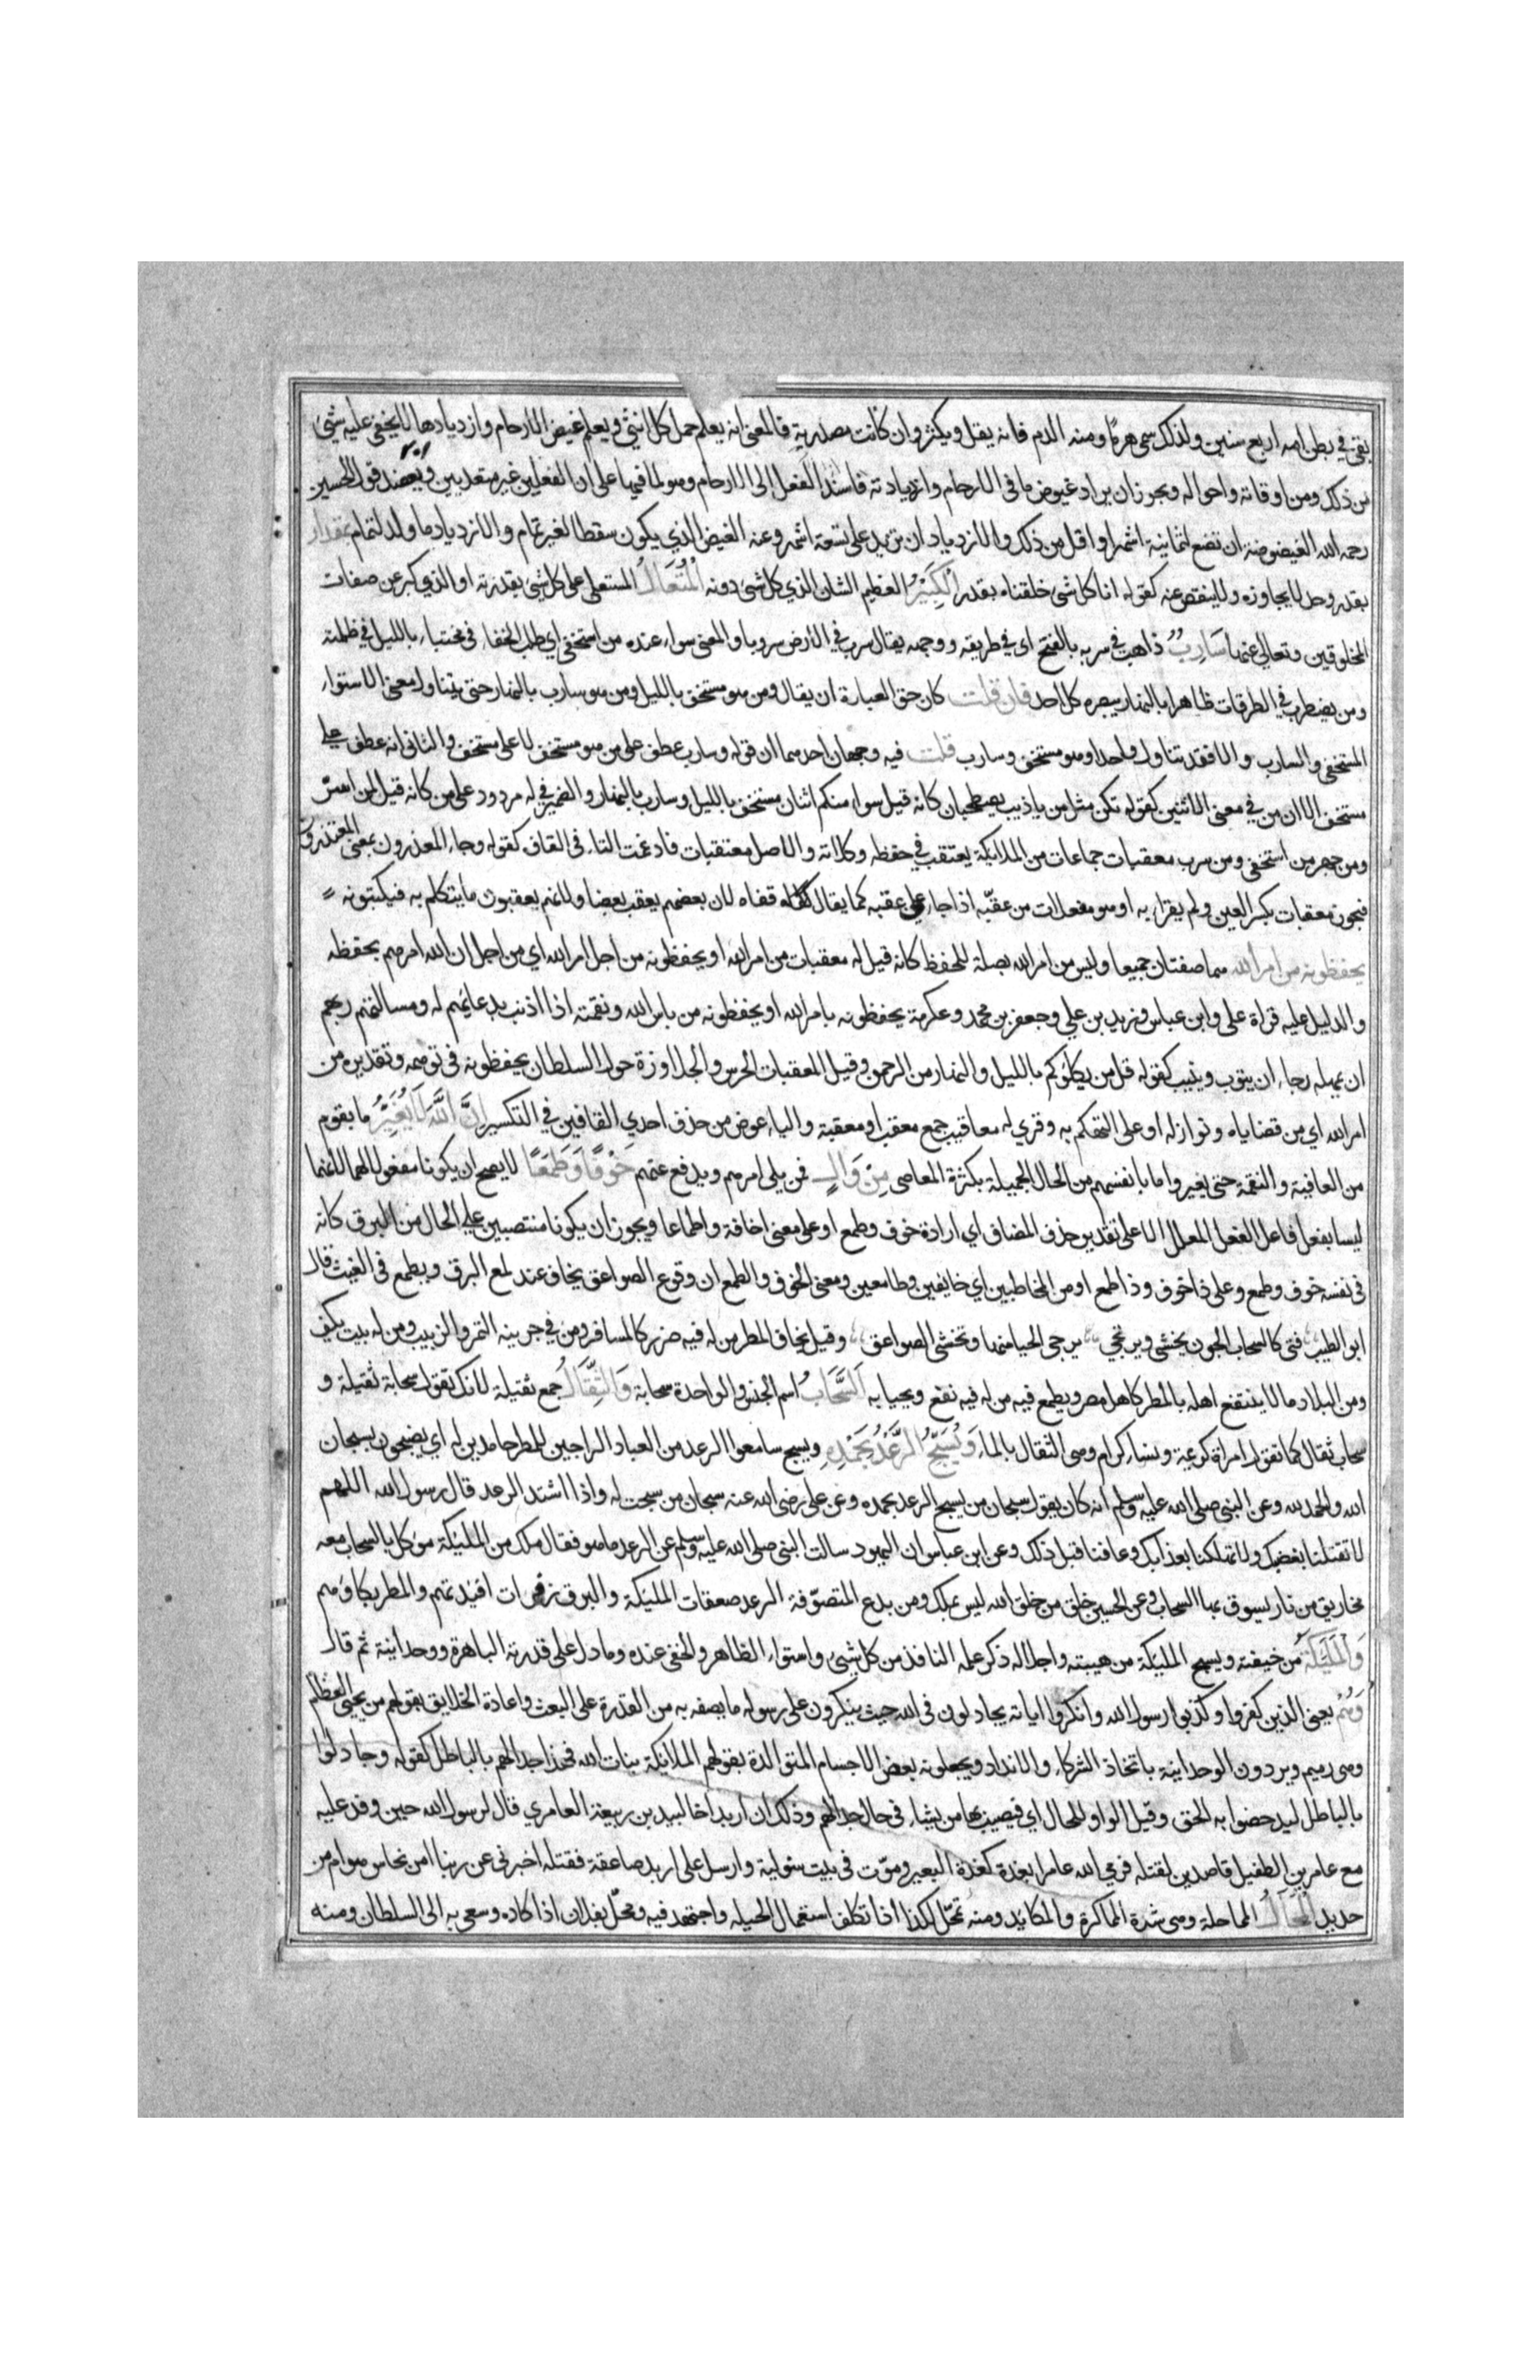 بقى في بطن امه اربع سنين ولذلك سمى هرما ومنه الدم فانه يقل ويكثر وان كانت مصدرية فالمعنى انه يعلم حمل كل انثى ويعلم غيض الارحام وازديادها لا يخفى عليه شيئ
من ذلك ومن اوقاته واحواله ويجوز ان يراد غيوض ما في الارحام وازدياده فاسند الفعل الى الارحام وهو لما فيها على ان الفعلين غير متعديين ويعضده قول الحسين
رحمه الله الغيضوضة ان تضع لثمانية اشهر او اقل من ذلك والازدياد ان تزيد على تسعة اشهر وعنه الغيض الذي يكون سقطا لغير تمام والازدياد ما ولد لتمام بمقدار
بقدر وحد لا يجاوزه ولا ينقص عنه كقوله انا كل شئ خلقناه بقدر الكَبِيْرُ العظيم الشان الذي كل شئ دونه المُتَعَالُ المستعلى على كل شئ بقدرته او الذي كبر عن صفات
المخلوقين وتعالى عنها سَارِبٌ ذاهب في سربه بالفتح اى في طريقه ووجهه يقال سرب في الارض سروبا والمعنى سواء عنده من استخفى اي طلب الخفاء في مختباء بالليل في ظلمته
ومن يضطرب في الطرقات ظاهرا بالنهار يبصره كل احد فان قلت كان حق العبارة ان يقال ومن هو مستخف بالليل ومن هو سارب بالنهار حتى يتناول معنى الاستواء
المستخفى والسارب والا فقد تناول واحدا هو مستخف وسارب قلت فيه وجهان احدهما ان قوله وسارب عطف على من هو مستخف لا على مستخف والثانى انه عطف على
مستخف الا ان من في معنى الاثنين كقوله نكن مثل من ياذيب يصطحبان كانه قيل سواء منكم اثنان مستخف بالليل وسارب بالنهار والضمير في له مردود على من كانه قيل لمن اسر
ومن جهر من استخفى ومن سرب معقبات جماعات من الملايكة يعتقب في حفظه وكلاته والاصل معتقبات فادغمت التاء في القاف كقوله وجاء المعذرون بمعنى المعتذرون
فيجوز معقبات بكسر العين ولم يقراء به او هو مفعلات من عقبه اذا جاء على عقبه كما يقال قفاه لان بعضهم يعقب بعضا ولانهم يعقبون ما يتكلم به فيكتبونه
يحفظونه من امر الله هما صفتان جميعا وليس من امر الله بصلة للحفظ كانه قيل له معقبات من امر الله او يحفظونه من اجل امر الله اي من اجل ان الله امرهم بحفظه
والدليل عليه قراة على وابن عباس وزيد بن علي وجعفر بن محمد وعكرمة يحفظونه بامر الله او يحفظونه من باس الله ونقمته اذا اذنب بدعائهم له ومسالتهم ربهم
ان يمهله رجاء ان يتوب وينيب كقوله قل من يكلؤكم بالليل والنهار من الرحمن وقيل المعقبات الحرس والجلاوزة حول السلطان يحفظونه في توهمه وتقديره من
امر الله اي من قضاياه ونوازله او على التهكم به وقرى له معاقيب جمع معقب او معقبة والياء عوض من حذف احدي القافين في التكسير اِنَّ اللَّهَ لَا يُغَيِّرُ ما بقوم
من العافية والنقمة حتى يغيروا ما بانفسهم من الحال الجميلة بكثرة المعاصى مِنْ وَالٍ فمن يلى امرهم ويدفع عنهم خَوْفًا وَطَمَعًا لا يصح ان يكونا مفعولا لهما لانهما
ليسا بفعل فاعل الفعل المعلل الا على تقدير حذف المضاف اي ارادة خوف وطمع او على معنى اخافة واطماعا ويجوز ان يكونا منتصبين على الحال من البرق كانه
في نفسه خوف وطمع وعلى ذا خوف وذا طمع او من المخاطبين اي خايفين وطامعين ومعنى الخوف والطمع ان وقوع الصواعق يخاف عند لمع البرق ويطمع في الغيث قال
ابو الطيب فتى كالسحاب الجون يخشى ويرتجي يرجى الحيا منها وتخشى الصواعق وقيل يخاف المطر من له فيه ضرر كالمسافر ومن في جرينه التمر والزبيب ومن له بيت يكف
ومن البلاد ما لا ينتفع اهله بالمطر كاهل مصر ويطمع فيه من له فيه نفع ويحيا به اَلسَّحَابُ اسم الجنس والواحدة سحابة وَالثِّقَالُ جمع ثقيلة لانك تقول سحابة ثقيلة و
سحاب ثقال كما تقول امراة كريمة ونساء كرام وهى الثقال بالماء وَيُسَبِّحُ الرَّعْدُ بِحَمْدِهِ ويسبح سامعوا الرعد من العباد الراجين للمطر حامدين له اي يضجون بسبحان
الله والحمد لله وعن النبى صلى الله عليه وسلم انه كان يقول سبحان من يسبح الرعد بحمده وعن على رضى الله عنه سبحان من سبحت له واذا اشتد الرعد قال رسول الله اللهم
لا تقتلنا بغضبك ولا تهلكنا بعذابك وعافنا قبل ذلك وعن ابن عباس ان اليهود سالت النبى صلى الله عليه وسلم عن الرعد ما هو فقال ملك من المليكة موكل بالسحاب معه
مخاريق من نار يسوق بها السحاب وعن الحسين خلق من خلق الله ليس بملك ومن بدع المتصوفة الرعد صعقات المليكة والبرق زفرات افيدتهم والمطر بكاؤهم
وَالْمَلَيِكَةُ من خيفته ويسبح المليكة من هيبته واجلاله ذكر علمه النافذ من كل شيئ واستواء الظاهر والخفى عنده وما دل على قدرته الباهرة ووحدانيته ثم قال
وَهُمْ يعنى الذين كفروا وكذبوا رسول الله وانكروا اياته يجادلون في الله حيث ينكرون على رسوله ما يصفه به من القدرة على البعث واعادة الخلايق بقولهم من يحيى العظام
وهى رميم ويردون الوحدانية باتخاذ الشركاء والانداد ويجعلونه بعض الاجسام المتوالدة بقولهم الملائكة بنات الله فهذا جدالهم بالباطل كقوله وجادلوا
بالباطل ليدحضوا به الحق وقيل الواو للحال اي فيصيب بها من يشاء في حال جدالهم وذلك ان اربد اخا لبيد بن ربيعة العامري قال لرسول الله حين وفد عليه
مع عامر بن الطفيل قاصدين لقتله فرمى الله عامرا بغدة كغدة البعير وموت في بيت سلولية وارسل على اربد صاعقة فقتله اخبرنى عن ربنا امن نحاس هو ام من
حديد المِحَالُ المماحلة وهى شدة المماكرة والمكايد ومنه تمحل لكذا اذا تكلف استعمال الحيلة واجتهد فيه ومحل بفلان اذا كاده وسعى به الى السلطان ومنه